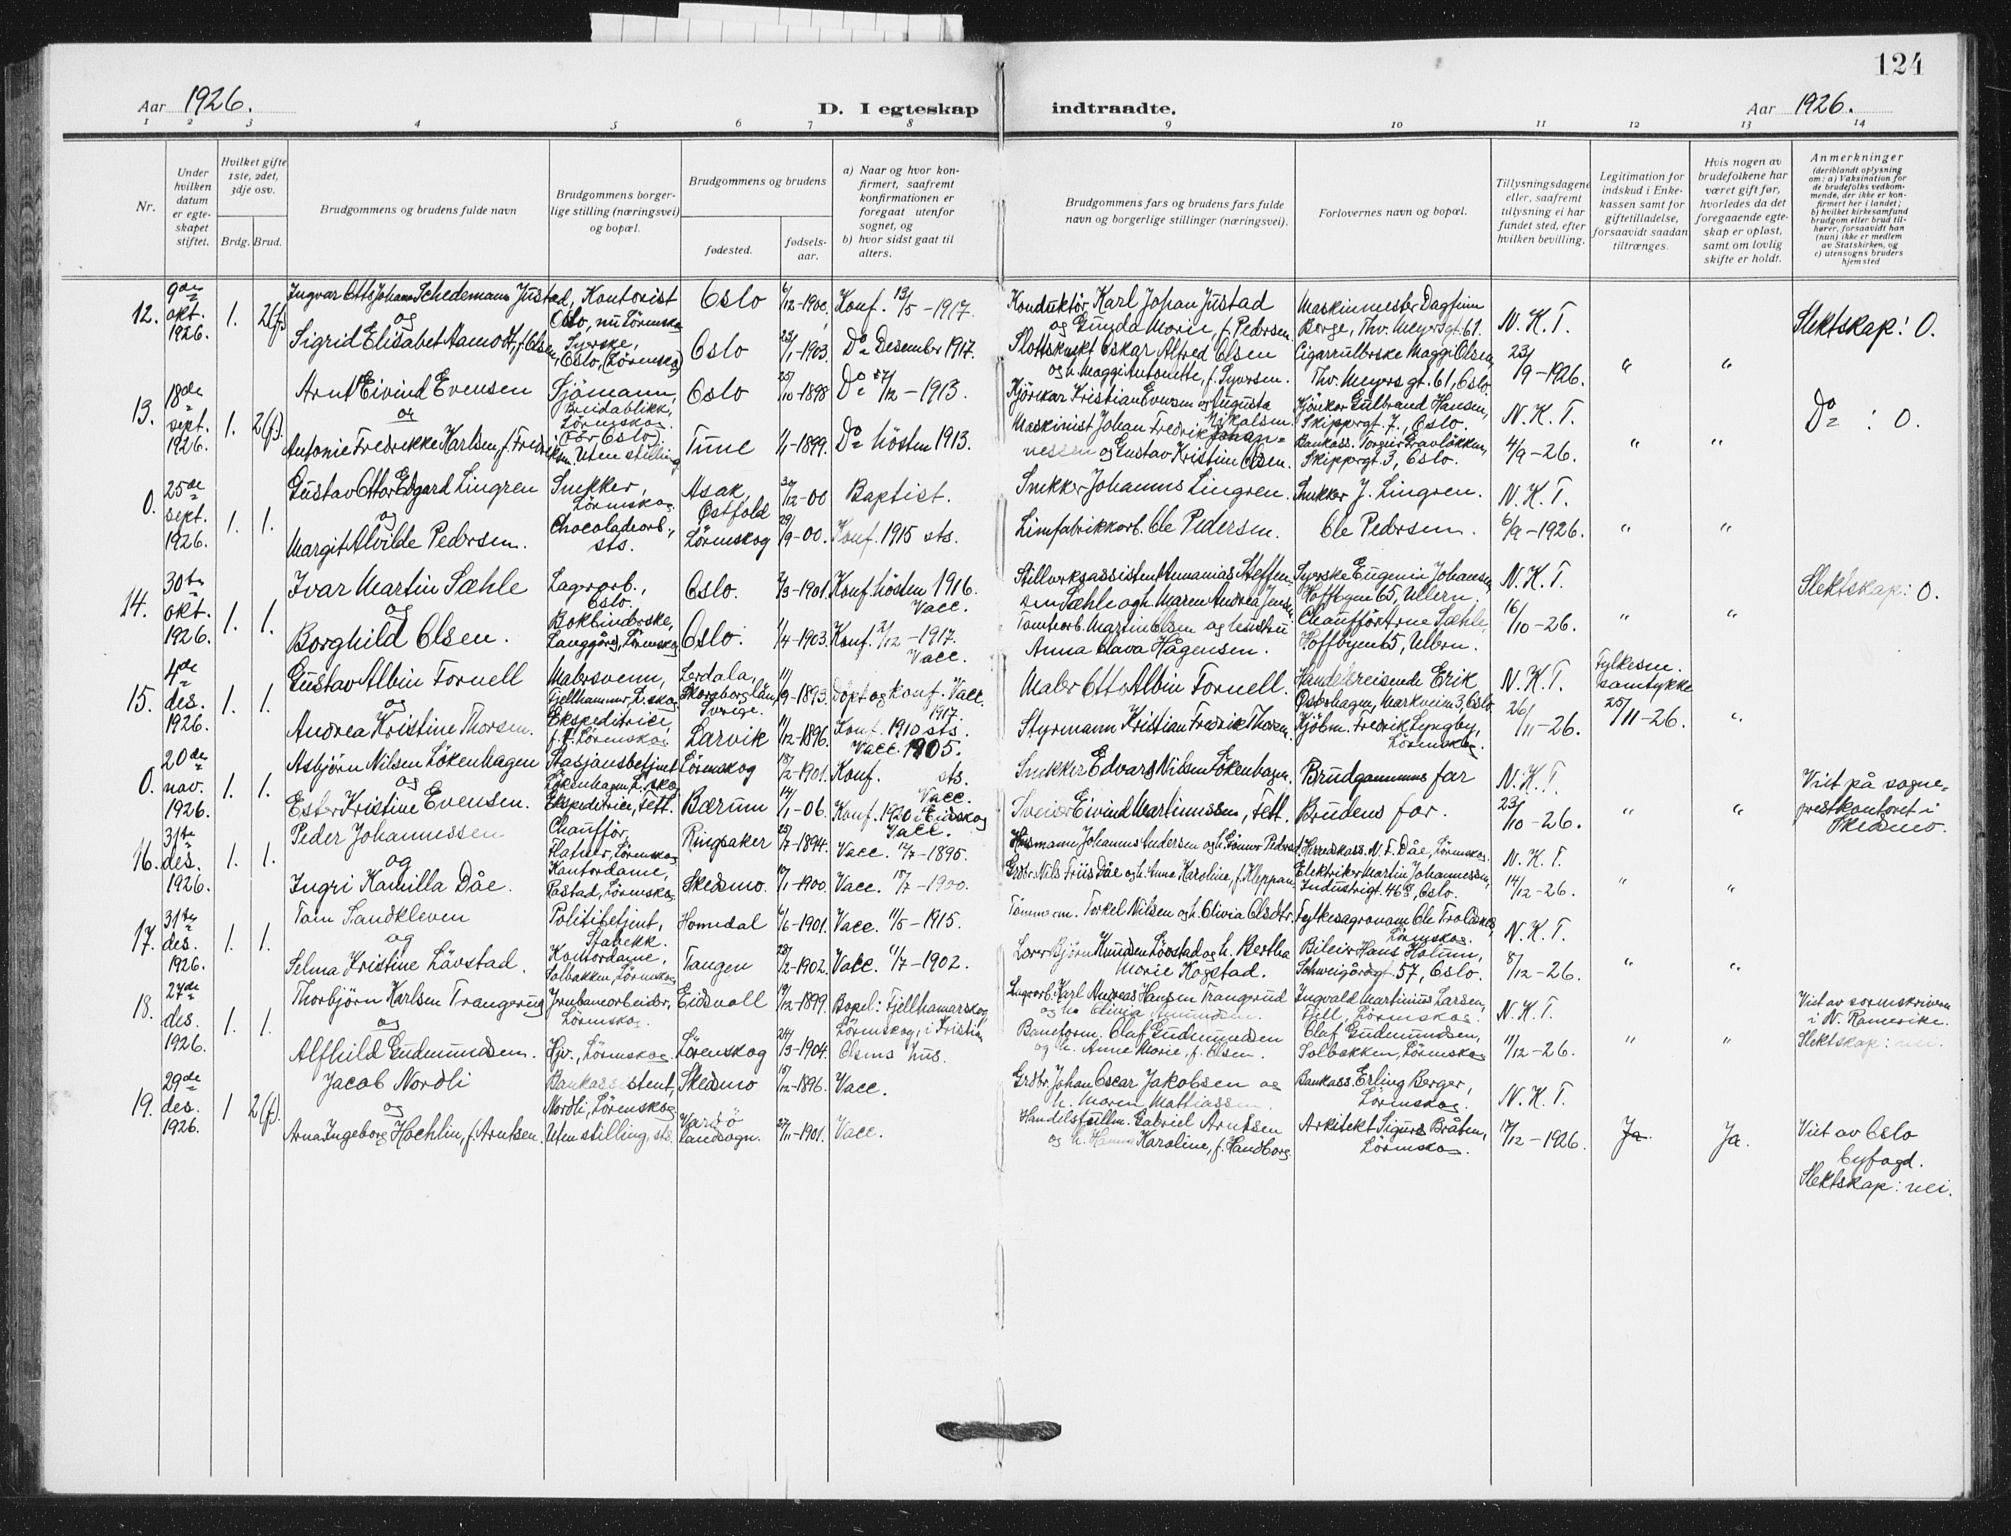 124
Aar 1926.
D. I egteskap indtraadte.
Aar 1926.
1 2 3 4 5 6 7 8 9 10 11 12 13 14
Nr.
Under hvilken datum er egteskapet stiftet.
Hvilket gifte 1ste, 2det, 3dje osv.
Brdg. Brud.
Brudgommens og brudens fulde navn
Brudgommens borgerlige stilling (næringsvei) og bopæl.
Brudgommens og brudens
fødested.
fødselsaar.
a) Naar og hvor konfirmert, saafremt konfirmationen er foregaat utenfor sognet, og
b) hvor sidst gaat til alters.
Brudgommens fars og brudens fars fulde navn og borgerlige stillinger (næringsvei).
Forlovernes navn og bopæl.
Tillysningsdagene eller, saafremt tillysning ei har fundet sted, efter hvilken bevilling.
Legitimation for indskud i Enkekassen samt for giftetilladelse, forsaavidt saadan tiltrænges.
Hvis nogen av brudefolkene har været gift før, hvorledes da det foregaaende egteskap er opløst, samt om lovlig skifte er holdt.
Anmerkninger
(deriblandt oplysning om: a) Vaksination for de brudefolks vedkommende, der ikke er konfirmert her i landet; b) hvilket kirkesamfund brudgom eller brud tilhører, forsaavidt han (hun) ikke er medlem av Statskirken, og c) utensogns bruders hjemsted
12. 9de okt. 1926. 1. 2(f)
Ingvar Otto Johan Schedemann Justad, Kontorist
Oslo, nu Lörenskog
Oslo 6/12-1900, Konf. 13/5-1917.
Konduktör Karl Johan Justad
og Gunda Marie, f. Pedersen
Maskinmester Dagfinn
Berge, Thv. Meyersgt. 61.
N. K. T.
Slektskap: 0.
og
Sigrid Elisabet Aamodt, f. Olsen
Syerske,
Oslo, (Lörenskog)
Oslo 23/1-1903. Do Desember 1917.
Slottsknekt Oskar Alfred Olsen
og h. Maggi Antonette, f. Syversen.
Cigarrullerske Maggi Olsen,
Thv. Meyers gt. 61, Oslo.
23/9-1926. " "
13. 18de sept. 1926. 1. 2(f).
Arnt Eivind Evensen
Sjömann,
Breidablikk,
Lörenskog
(för Oslo)
Oslo 25/10-1898 Do /12-1913.
Kjörekar Kristian Evensen og Augusta
Nikolsen
Kjörekar Gulbrand Hansen,
Skippergt. 7, Oslo.
N. K. T.
Do : 0.
og
Antonie Fredrikke Karlsen, f. Fredriksen.
Uten stilling
Tune 1/1-1899. Do hösten 1913.
Maskinist Johan Fredrik Johannessen og Gustav Kristine Olsen.
Bankass. Torgeir Gravlökken,
Skippergt. 3, Oslo.
4/9-26. " "
0. 25de sept. 1926. 1. 1.
Gustav Ottar Edgard Lingren
Snekker,
Lörenskog
Asak, Östfold
/12-00 Baptist.
Snekker Johannes Lingren.
Snekker J. Lingren.
N. K. T.
og
Margit Alvilde Pedersen.
Chocoladearb.,
sts.
Lörenskog 29/9-00. Konf. 1915 sts.
Limfabrikkarb. Ole Pedersen.
Ole Pedersen.
6/9-1926. " "
14. 30te okt. 1926. 1. 1.
Ivar Martin Sæhle
Lagerarb.,
Oslo.
Oslo. 2/3-1901. Konf. hösten 1916.
Vacc.
Stillverksassistent Ananias Steffensen Sæhle og h. Maren Andrea Jensen
Syerske Eugenie Johansen,
Hoffbyen 65, Ullern.
N. K. T.
Slektskap: 0.
og
Borghild Olsen.
Bokbinderske,
Langgård, Lörenskog
Oslo. 1/4-1903. Konf. 2/12-1917.
Vacc.
Tomtearb. Martin Olsen og hustru
Anna Hava Hågensen.
Chaufför Arne Sæhle,
Hoffbyen 65, Ullern.
16/10-26. " "
15. 4de des. 1926. 1. 1.
Gustav Albin Fornell
Malersvenn,
Fjellhammer, L.skog
Lerdala,
Skaraborg län,
Sverige.
11/9-1893. Döpt og konf. Vacc.
1917.
Maler Otto Albin Fornell.
Handelsreisende Erik
Österhagen, Markveien 3, Oslo.
N. K. T.
Fylkesm.
samtykke
25/11-26.
og
Andrea Kristine Thorsen.
Ekspeditrice,
f. t. Lörenskog
Larvik 11/12-1896. Konf. 1910 sts.
Vacc. 1905.
Styrmann Kristian Fredrik Thorsen.
Kjöbm. Fredrik Lyngby,
Lörenskog.
26/11-26. "
0. 20de nov. 1926. 1. 1.
Asbjörn Nilsen Lökenhagen
Stasjonsbetjent
Lökenhagen, L.skog
Lörenskog 18/2-1901. Konf. sts.
Vacc.
Snekker Edvard Nilsen Lökenhagen.
Brudgommens far
N. K. T.
Viet på sogneprestkontoret i
Skedsmo.
og
Ester Kristine Evensen.
Ekspeditrice, Fett.
Bærum 14/1-06. Konf. 1920 i Eidskog
Vacc.
Sveiser Eivind Martinussen, Fett.
Brudens far.
23/10-26. " "
16. 31te des. 1926. 1. 1.
Peder Johannessen
Chauffør,
Flatner, Lörenskog
Ringsaker 25/7-1894. Vacc. 12/7-1895.
Husmann Johannes Andersen og h. Gunnor Pedersd.
Herredskass. N. F. Dåe, Lörenskog
N. K. T.
og
Ingri Kamilla Dåe.
Kontordame,
Rastad, Lörenskog
Skedsmo. 10/1-1900. Vacc. 18/7-1900.
Grdbr. Nils Friis Dåe og h. Anne Karoline, f. Kleppan.
Elektriker Martin Johannessen,
Industrigt. 46 , Oslo.
14/12-26. " "
17. 31te des. 1926. 1. 1.
Tom Sandkleven
Politibetjent,
Stabekk.
Homedal 6/6-1901. Vacc. 11/5-1915.
Tömmerm. Torkel Nilsen og h. Olivia Olsdtr.
Fylkesagronom Ole Troldsk
Lörenskog.
N. K. T.
og
Selma Kristine Lövstad.
Kontordame,
Solbakken, Lörenskog
Tangen 28/2-1902. Vacc. 11/7-1902.
Lærer Björn Knudsen Lövstad og h. Bertha
Marie Kogstad.
Bileier Hans Holum,
Schweigårdsgt. 57, Oslo.
8/12-26. " "
18. 27de des. 1926. 1. 1.
Thorbjörn Karlsen Trangerud
Jernbanearbeider,
Lörenskog.
Eidsvoll 19/12-1899. Bopel: Fjellhamarskog
Lagerarb. Karl Andreas Hansen Trangerud
og h. Olivia Amundsen.
Ingvald Martinius Larsen,
Fjell, Lörenskog.
N. K. T.
Viet av sorenskriveren
i N. Romerike.
og
Alfhild Gudmundsen.
Hjv., Lörenskog.
Lörenskog 24/3-1904. Lörenskog, i Kristian
Olsens hus.
Baneform. Olaf Gudmundsen
og h. Anne Marie, f. Olsen.
Olaf Gudmundsen,
Solbakken, Lörenskog
11/12-26. " "
Slektskap: nei.
19. 29de des. 1926. 1 2(f).
Jacob Nordli
Bankassistent,
Nordli, Lörenskog
Skedsmo /12-1896. Vacc.
Grdbr. Johan Oscar Jakobsen og
h. Maren Mattiassen
Bankass. Erling Berger,
Lörenskog.
N. K. T.
og
Arna Ingeborg Hoehlin, f. Arntsen.
Uten stilling, sts.
Vardö
landsogn.
27/11-1901. Vacc.
Handelsfullm. Gabriel Arntsen
og h. Hanna Karoline, f. Handborg
Arkitekt Sigurd Bråten,
Lörenskog.
17/12-1926. Ja. Ja.
Viet av Oslo
byfogd.
Slektskap: nei.